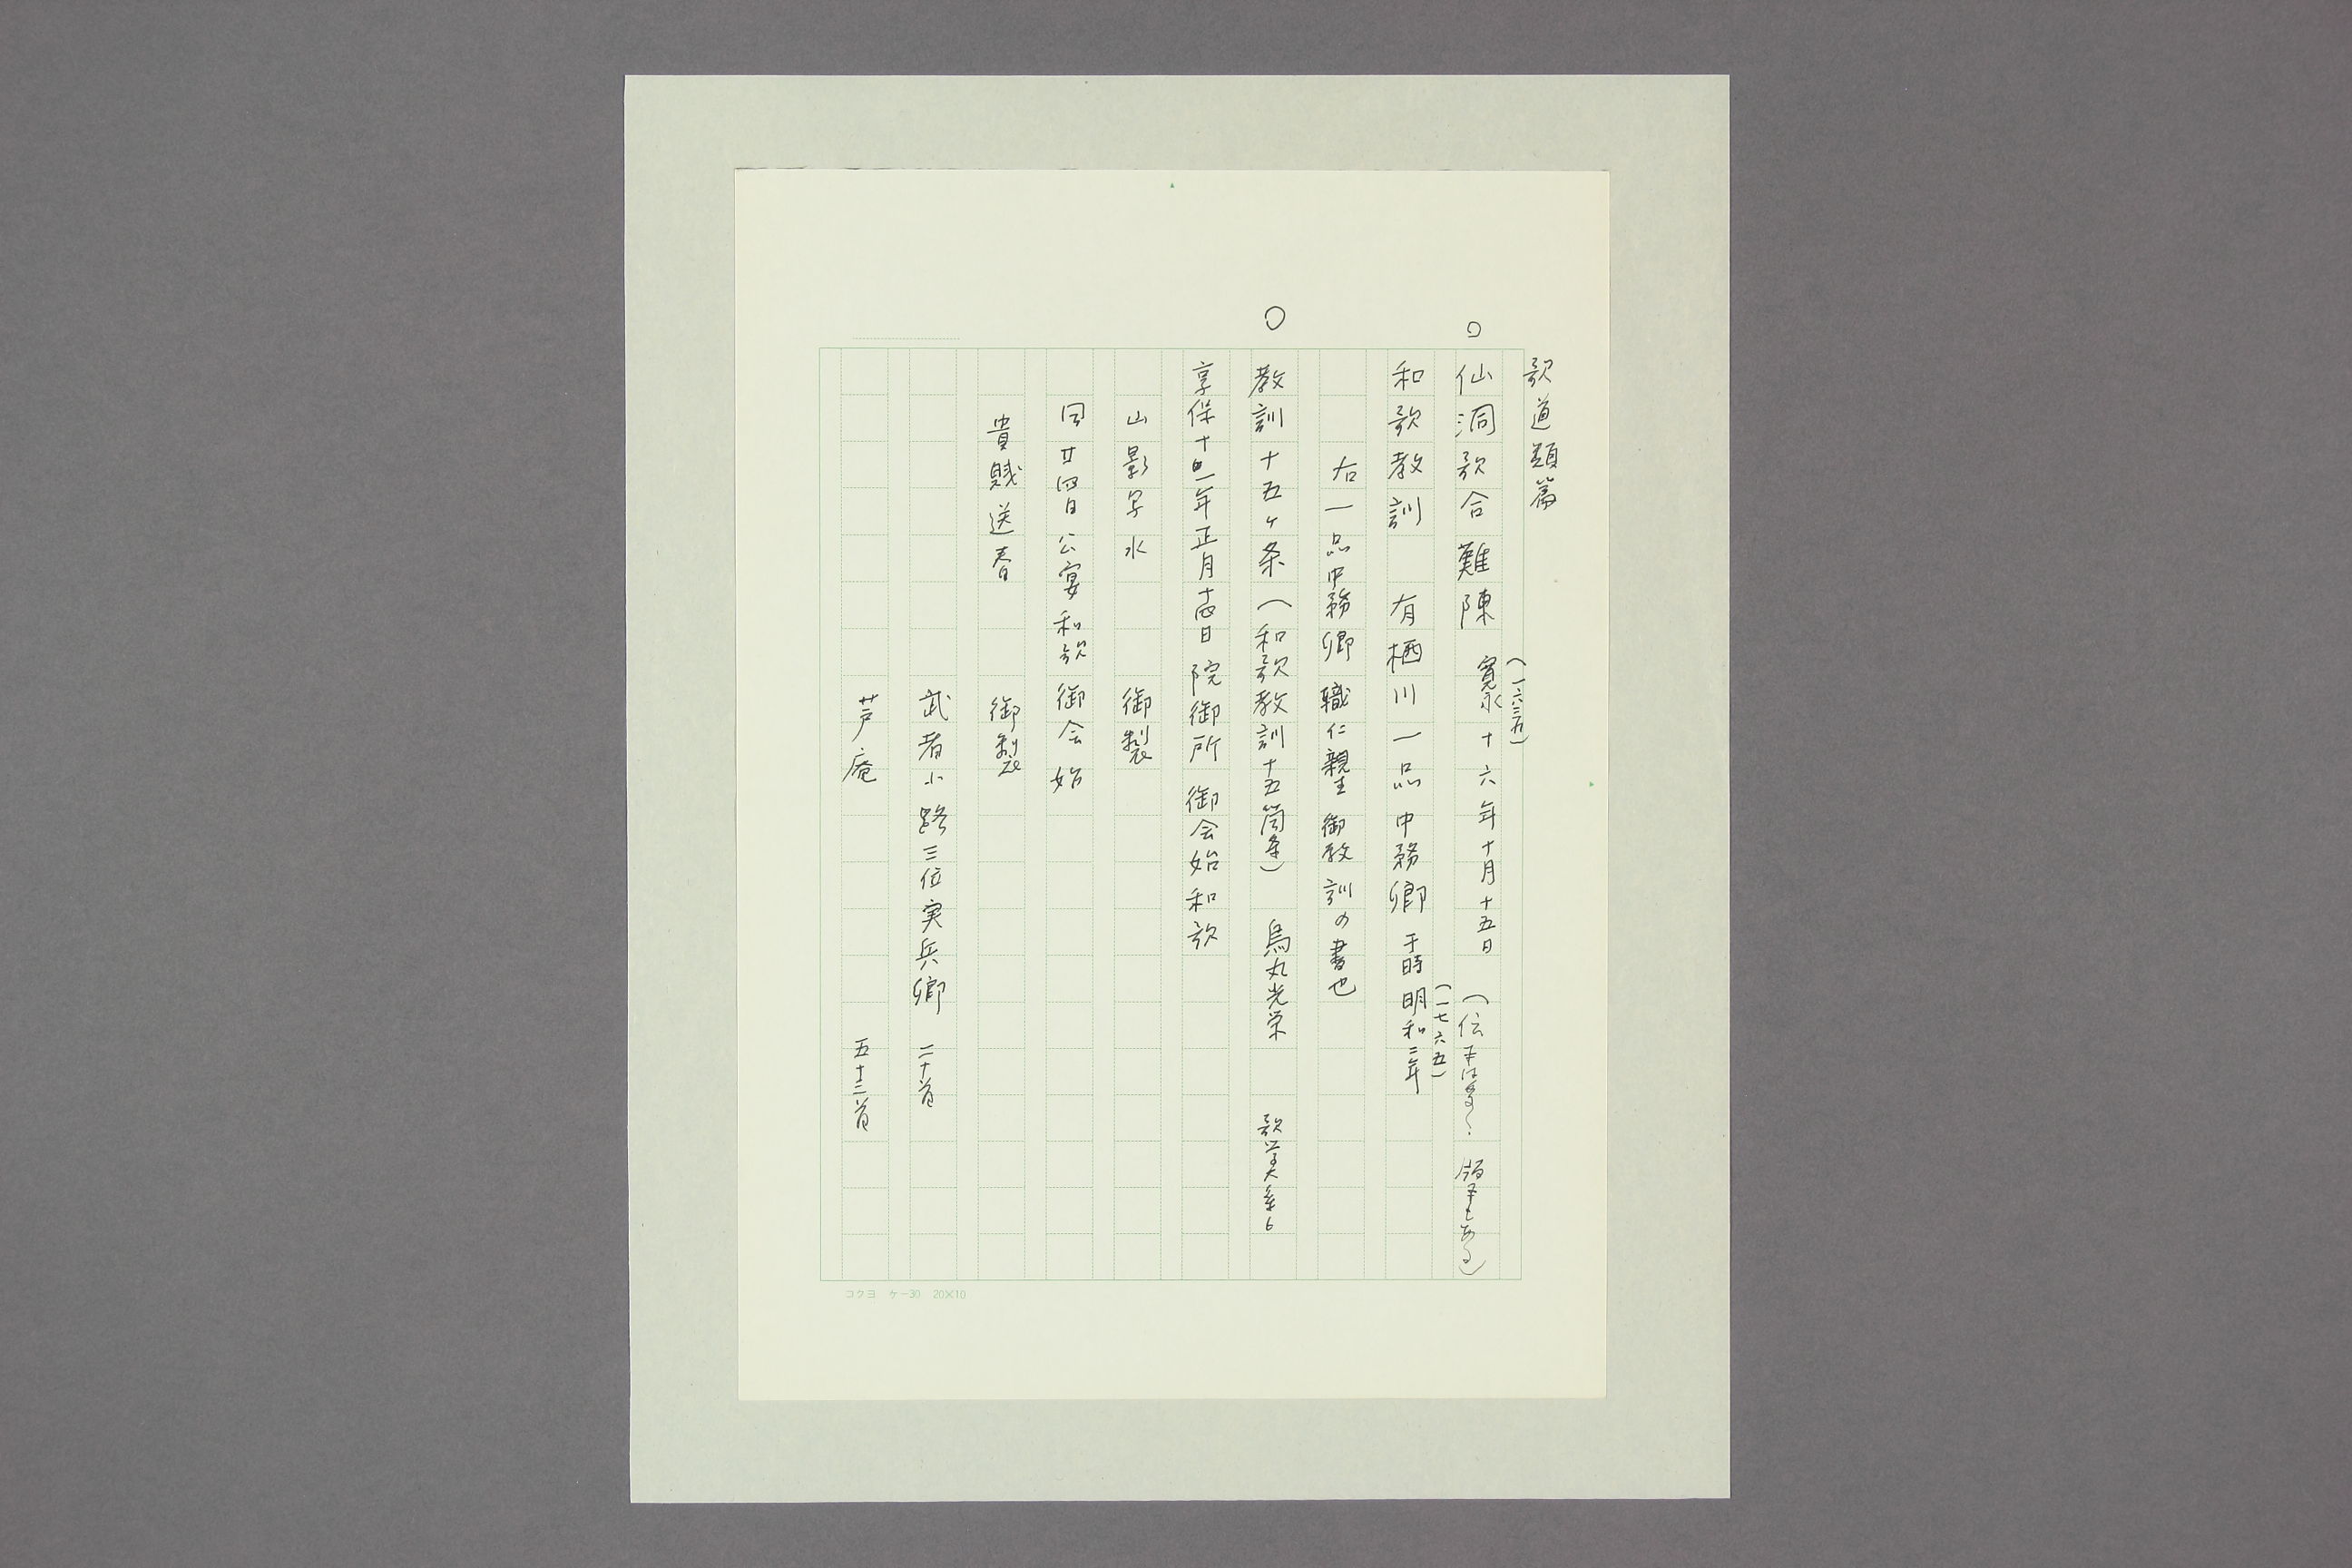 歌道類篇
○仙洞歌合難陳 寛永十六年十月十五日 (伝本は多く. 版本もある)
(一六三九)
和歌教訓 有栖川一品中務卿 于時明和二年
(一七六五)
右一品中務卿職仁親王御教訓の書也
○教訓十五ヶ条(和歌教訓十五箇条) 烏丸光栄 歌学大系6
享保十四年正月十四日 院御所 御会始和歌
山影写水 御製
同廿四日公宴和歌御会始
貴賎送春 御製
武者小路三位実兵卿 二十首
芦庵 五十三首
コクヨ ケー30 20×10